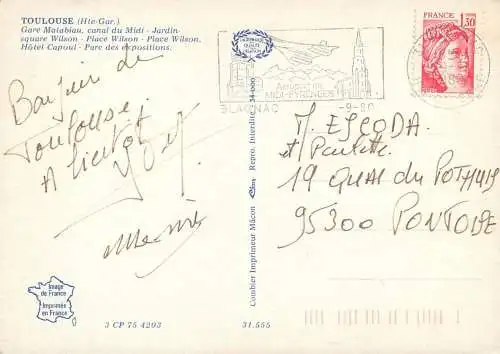 TOULOUSE (Hte-Gar.)
Gare Matabiau, canal du Midi - Jardin-
square Wilson - Place Wilson - Place Wilson,
Hôtel Capoul - Parc des expositions.
Bonjour de
Toulouse,
A bientôt
Image
de France
Imprimée
en France
3 CP 75 4203
31.555
Combier Imprimeur Mâcon
Repro. Interdite
34-000
MIDI-PYRENEES
BLAGNAC
-9-80
FRANCE
1,30
M. ESCODA
et Paulette
19 QUAI du POTHUIS
95300 PONTOISE